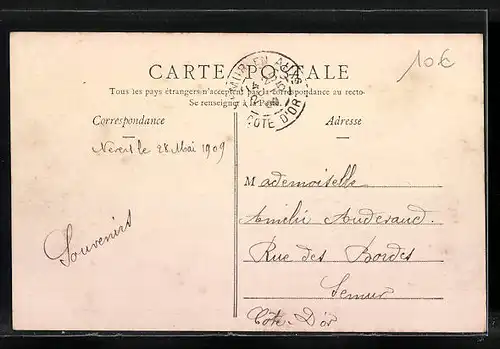 10€
CARTE POSTALE
Tous les pays étrangers n'acceptent pas la correspondance au recto
Se renseigner à la Poste
SEMUR-EN-AUXOIS
COTE D'OR
Correspondance
Adresse
le 28 Mai 1909
Souvenirs
Mademoiselle
Amélie
Rue des Bordes
Semur
Côte-D'or